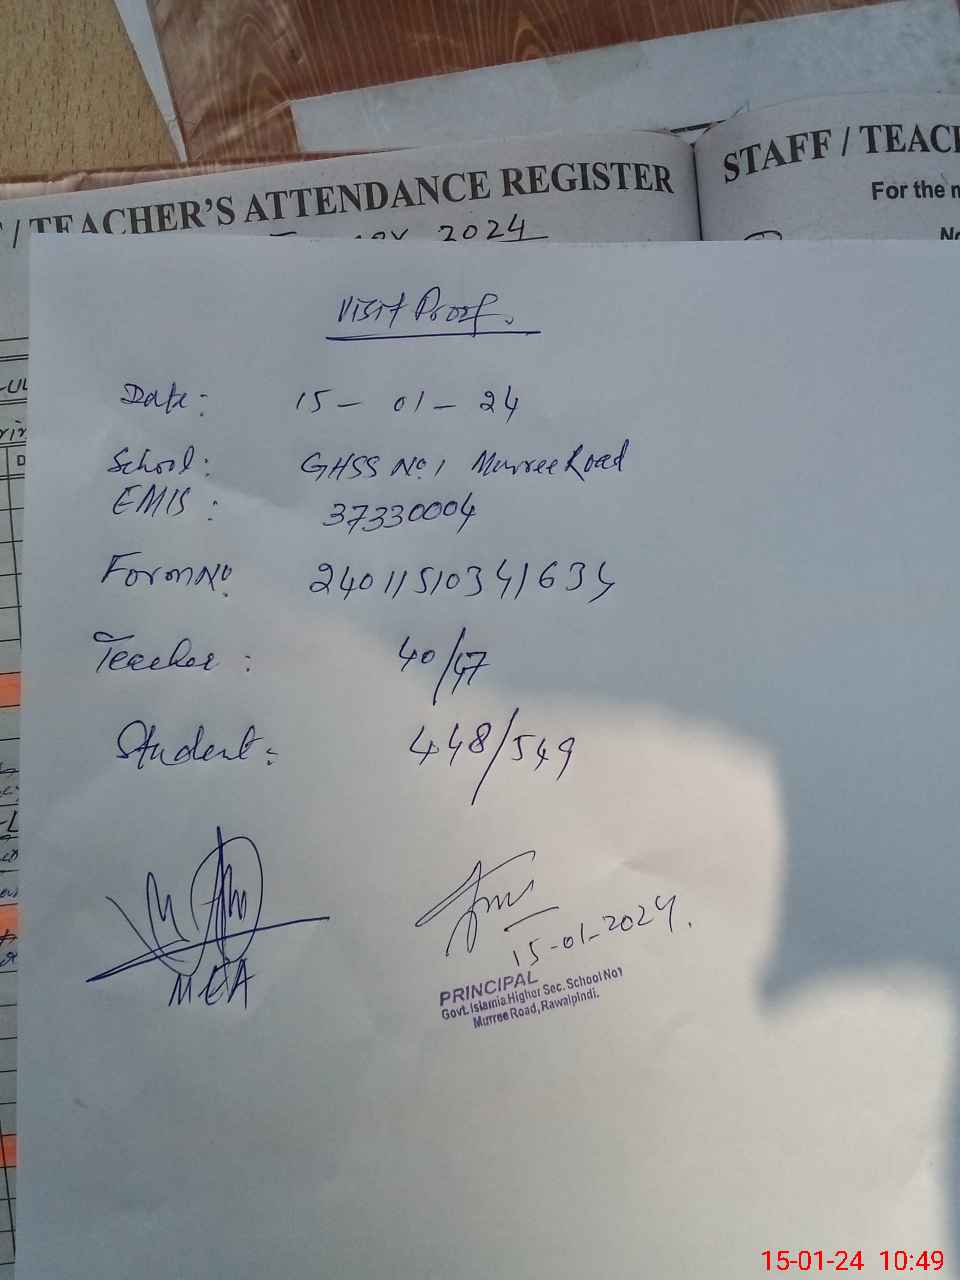 / TEACHER'S ATTENDANCE REGISTER
2024
STAFF / TEACH
For the m
No
Visit Proof.
Date: 15 - 01 - 24
School: GHSS No.1 Murree Road
EMIS: 37330004
Form No. 24011510341634
Teacher: 40/47
Student: 448/549
MEA
15-01-2024.
PRINCIPAL
Govt. Islamia Higher Sec. School No1
Murree Road, Rawalpindi.
15-01-24 10:49